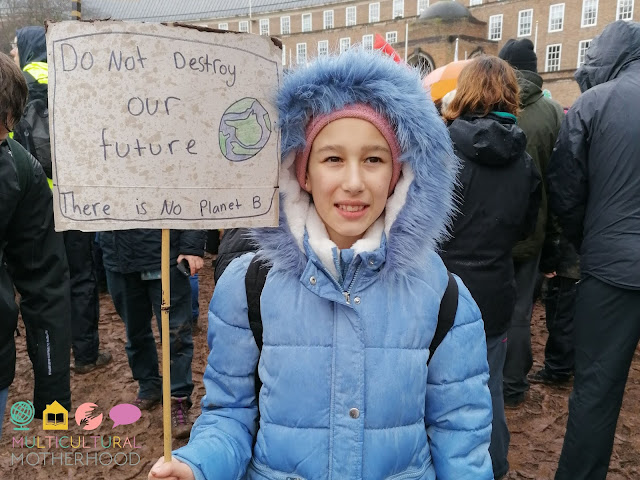 Do Not Destroy
our
future
There is No Planet B
MULTICULTURAL
MOTHERHOOD